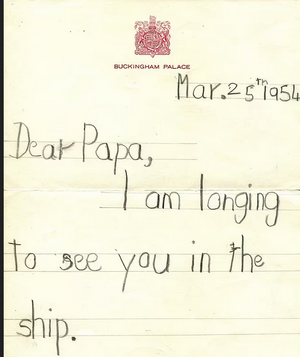 BUCKINGHAM PALACE
Mar. 25th 1954
Dear Papa,
I am longing
to see you in the
ship.